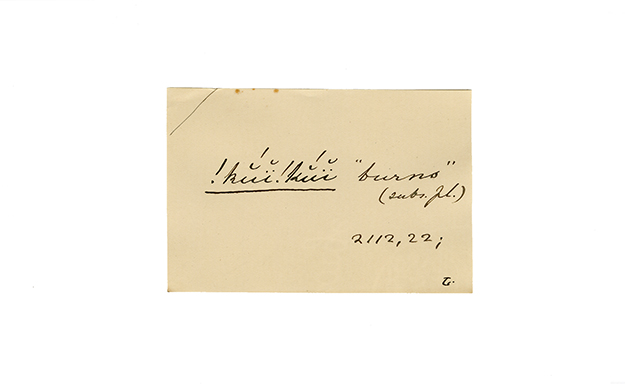 !kŭ́ĭ!kŭ́ĭ "burns"
(subs. pl.)
2112, 22;
T.